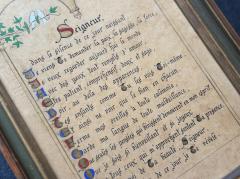 Seigneur,
Dans le silence de ce jour naissant,
Je viens Te demander la paix, la sagesse, la force,
Je veux regarder aujourd'hui le monde
Avec des yeux tout remplis d'amour,
être patient, compréhensif, doux et sage,
Voir au delà des apparences
Tes enfants comme Tu les vois Toi-même,
Et ainsi ne voir que le bien en chacun.
Ferme mes oreilles à toute calomnie,
Garde ma langue de toute malveillance,
Que seules les pensées qui bénissent demeurent en mon esprit,
Que je sois si bienveillant et si joyeux
Que tous ceux qui m'approchent sentent Ta présence,
Revêts-moi de Ta beauté, Seigneur